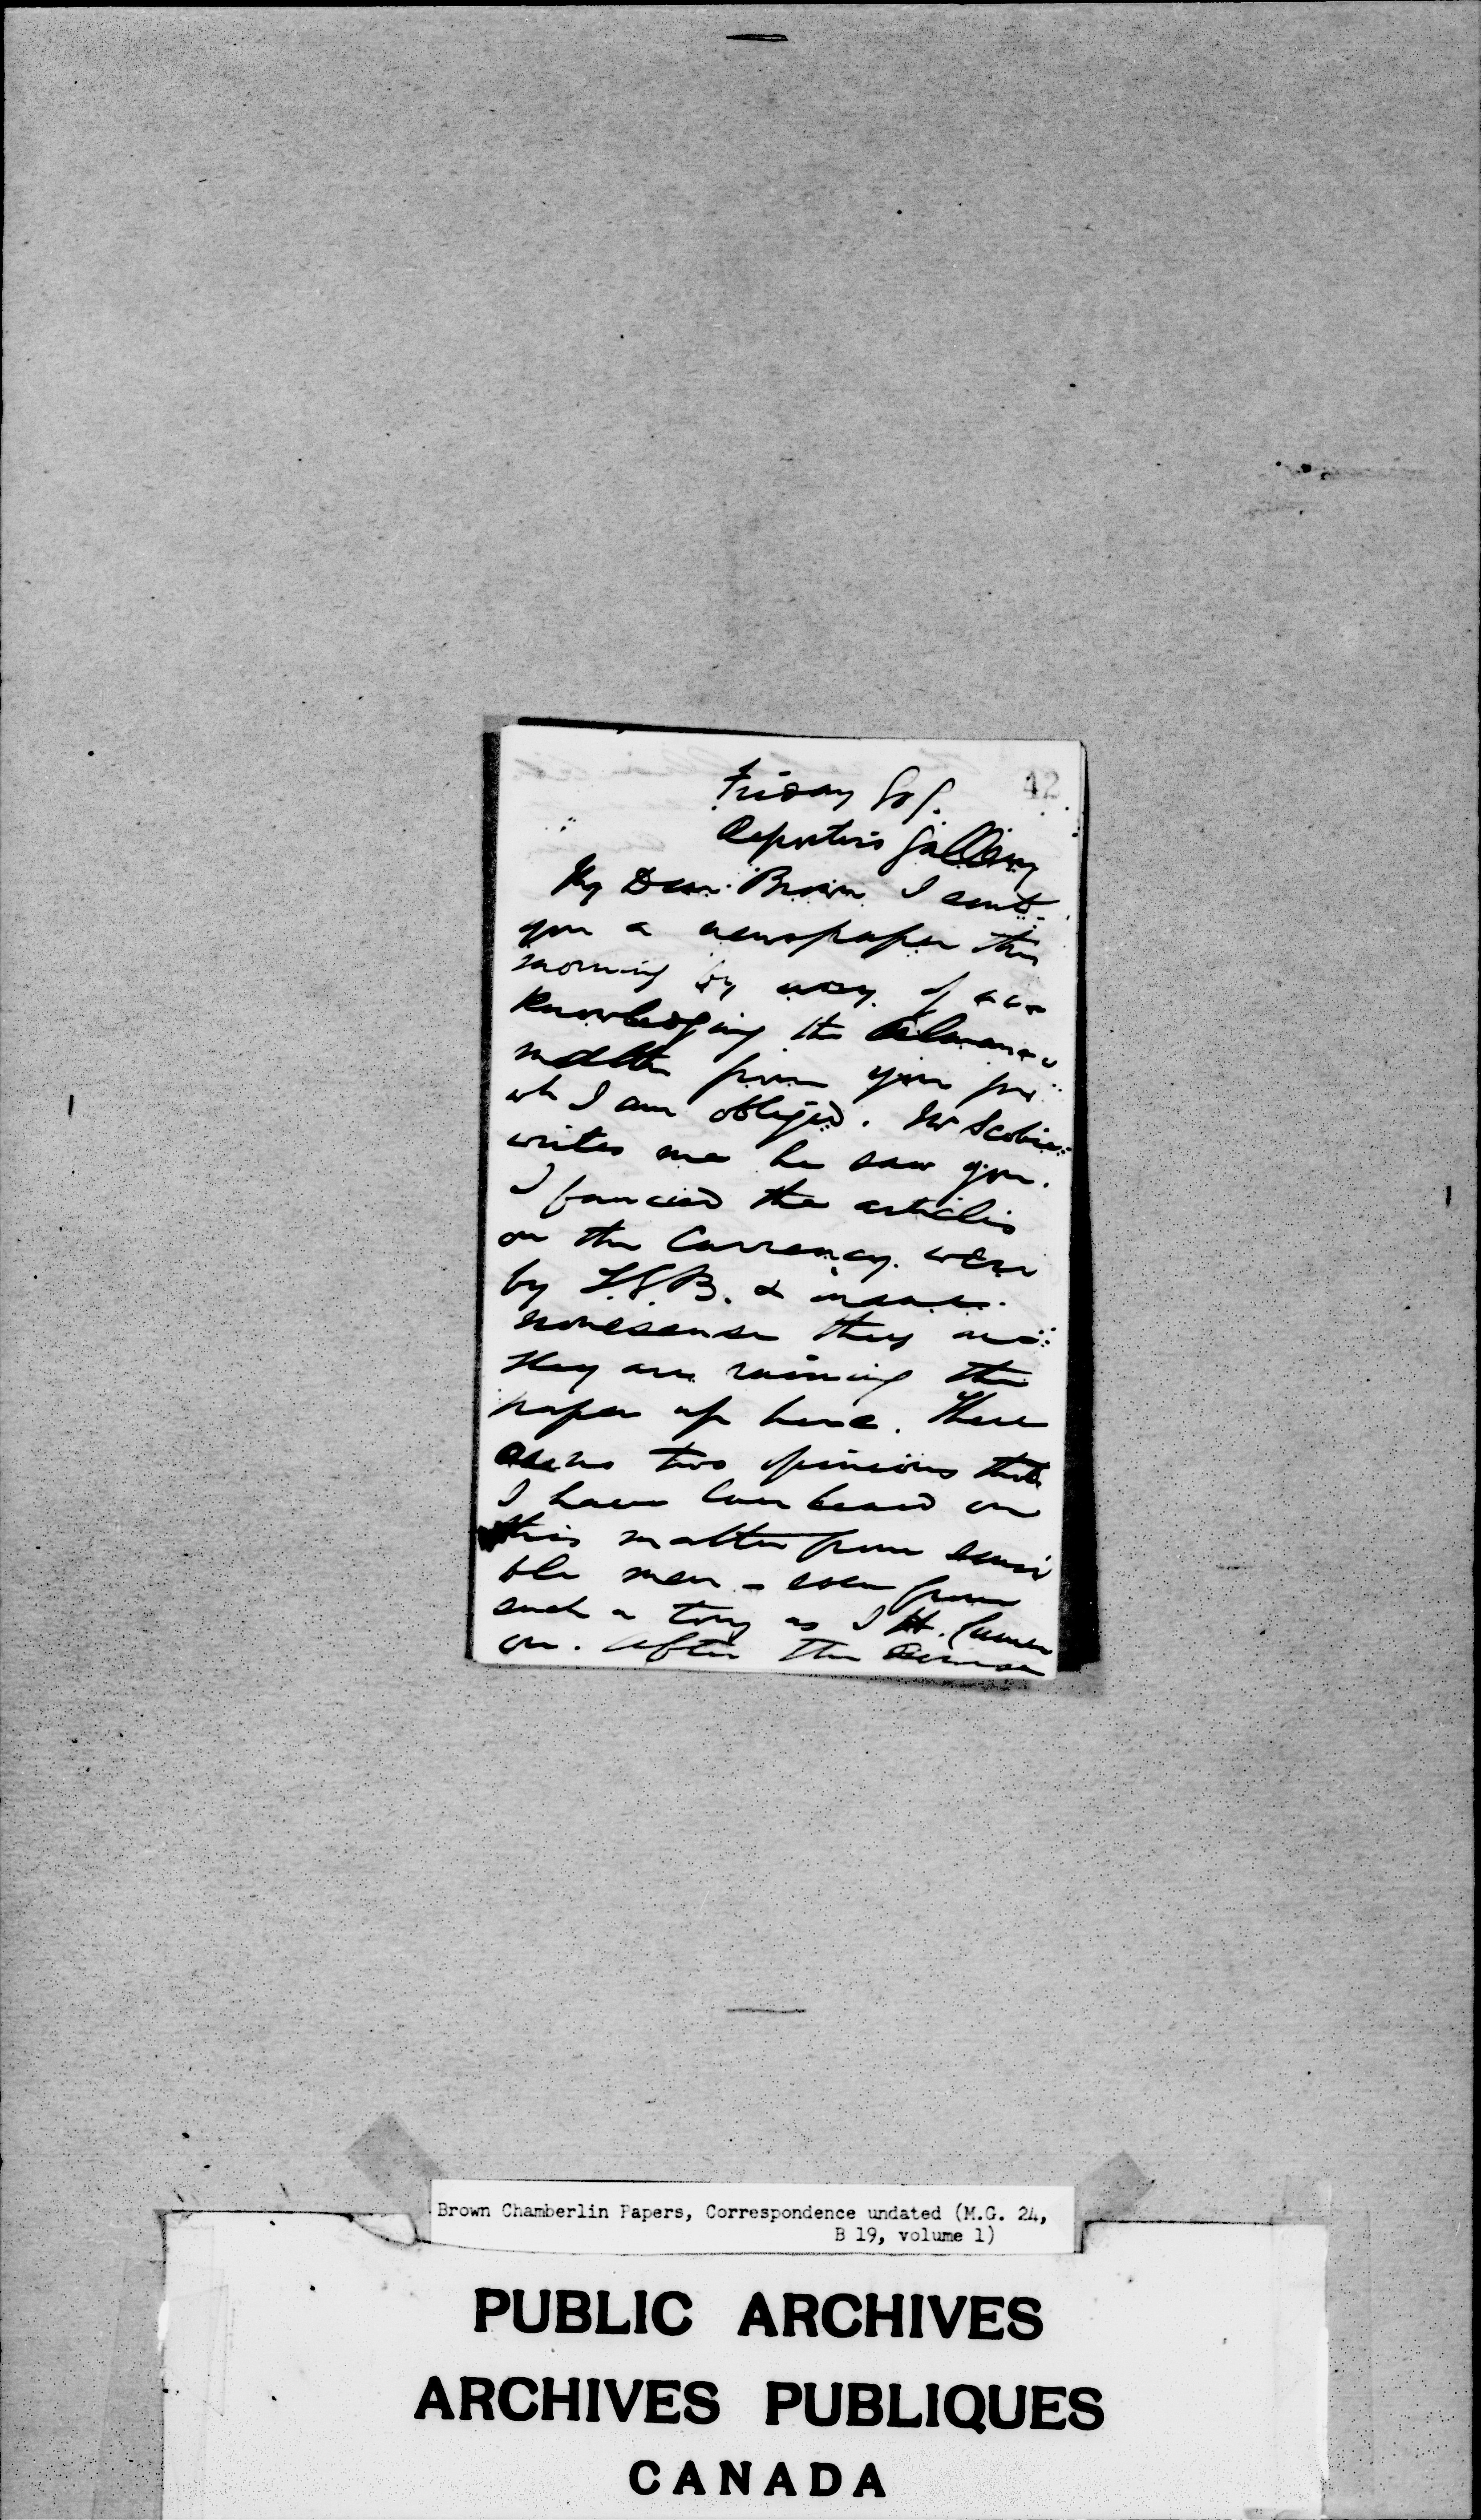 42
Friday
Reporters Gallery
My Dear Brown I sent
you a newspaper this
morning by way of ac
knowledging the Almanac
matter from you for
wh I am obliged. Mr Scobie
writes me he saw you.
I fancied the articles
on the Currency were
by & insane
nonesense they are
They are ruining the
paper up here. There
are no two opinions that
I have heard on
this matter from sensi
ble men - even from
such a tory as J H. Camer
on. After the
Brown Chamberlin Papers, Correspondence undated (M.G. 24,
B 19, volume 1)
PUBLIC ARCHIVES
ARCHIVES PUBLIQUES
CANADA